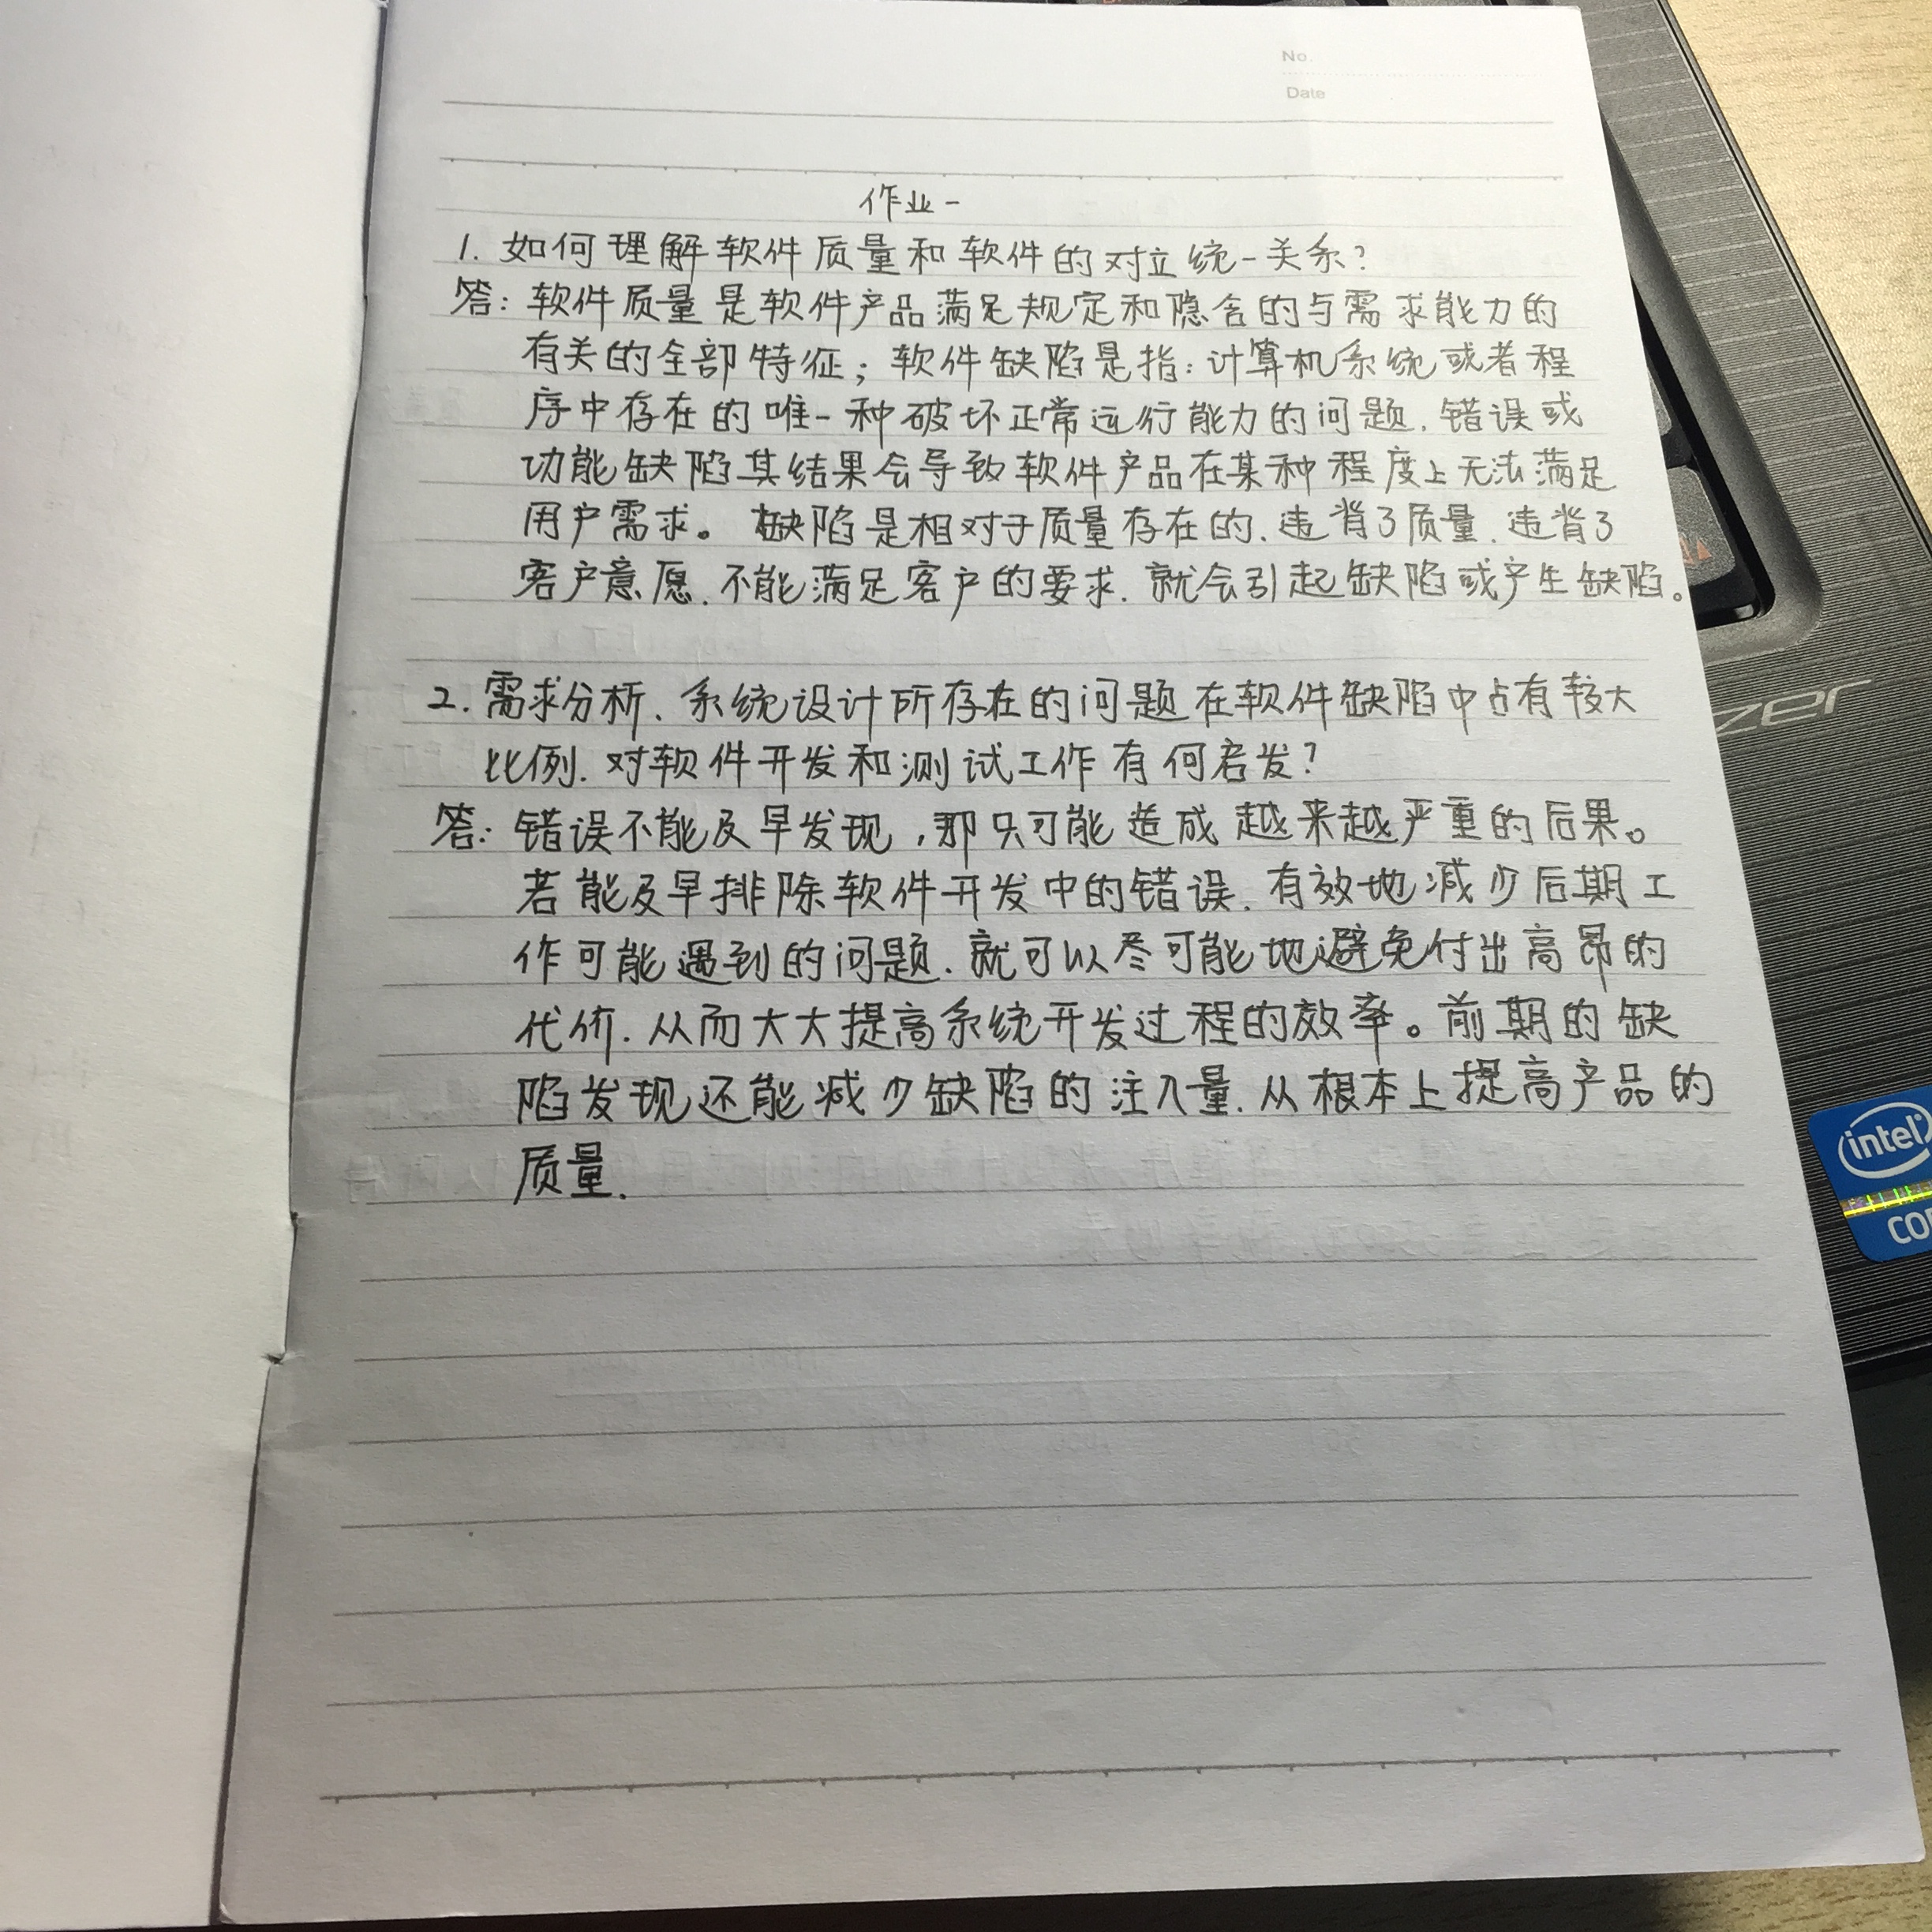 No.
Date
作业一
1. 如何理解软件质量和软件的对立统一关系?
答: 软件质量是软件产品满足规定和隐含的与需求能力的
有关的全部特征; 软件缺陷是指: 计算机系统或者程
序中存在的唯一种破坏正常运行能力的问题、错误或
功能缺陷其结果会导致软件产品在某种程度上无法满足
用户需求。缺陷是相对于质量存在的、违背了质量、违背了
客户意愿、不能满足客户的要求、就会引起缺陷或产生缺陷。
2. 需求分析、系统设计所存在的问题在软件缺陷中占有较大
比例、对软件开发和测试工作有何启发?
答: 错误不能及早发现,那只可能造成越来越严重的后果。
若能及早排除软件开发中的错误、有效地减少后期工
作可能遇到的问题、就可以尽可能地避免付出高昂的
代价、从而大大提高系统开发过程的效率。前期的缺
陷发现还能减少缺陷的注入量、从根本上提高产品的
质量.
intel